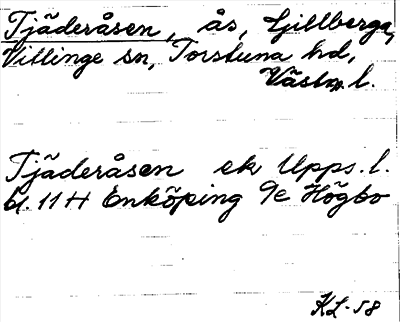 Tjäderåsen, ås, Gillberga,
Villinge sn, Torstuna hd,
Västm. l.
Tjäderåsen ek Upps. l.
bl. 11 H Enköping 9e Högbo
KL-58